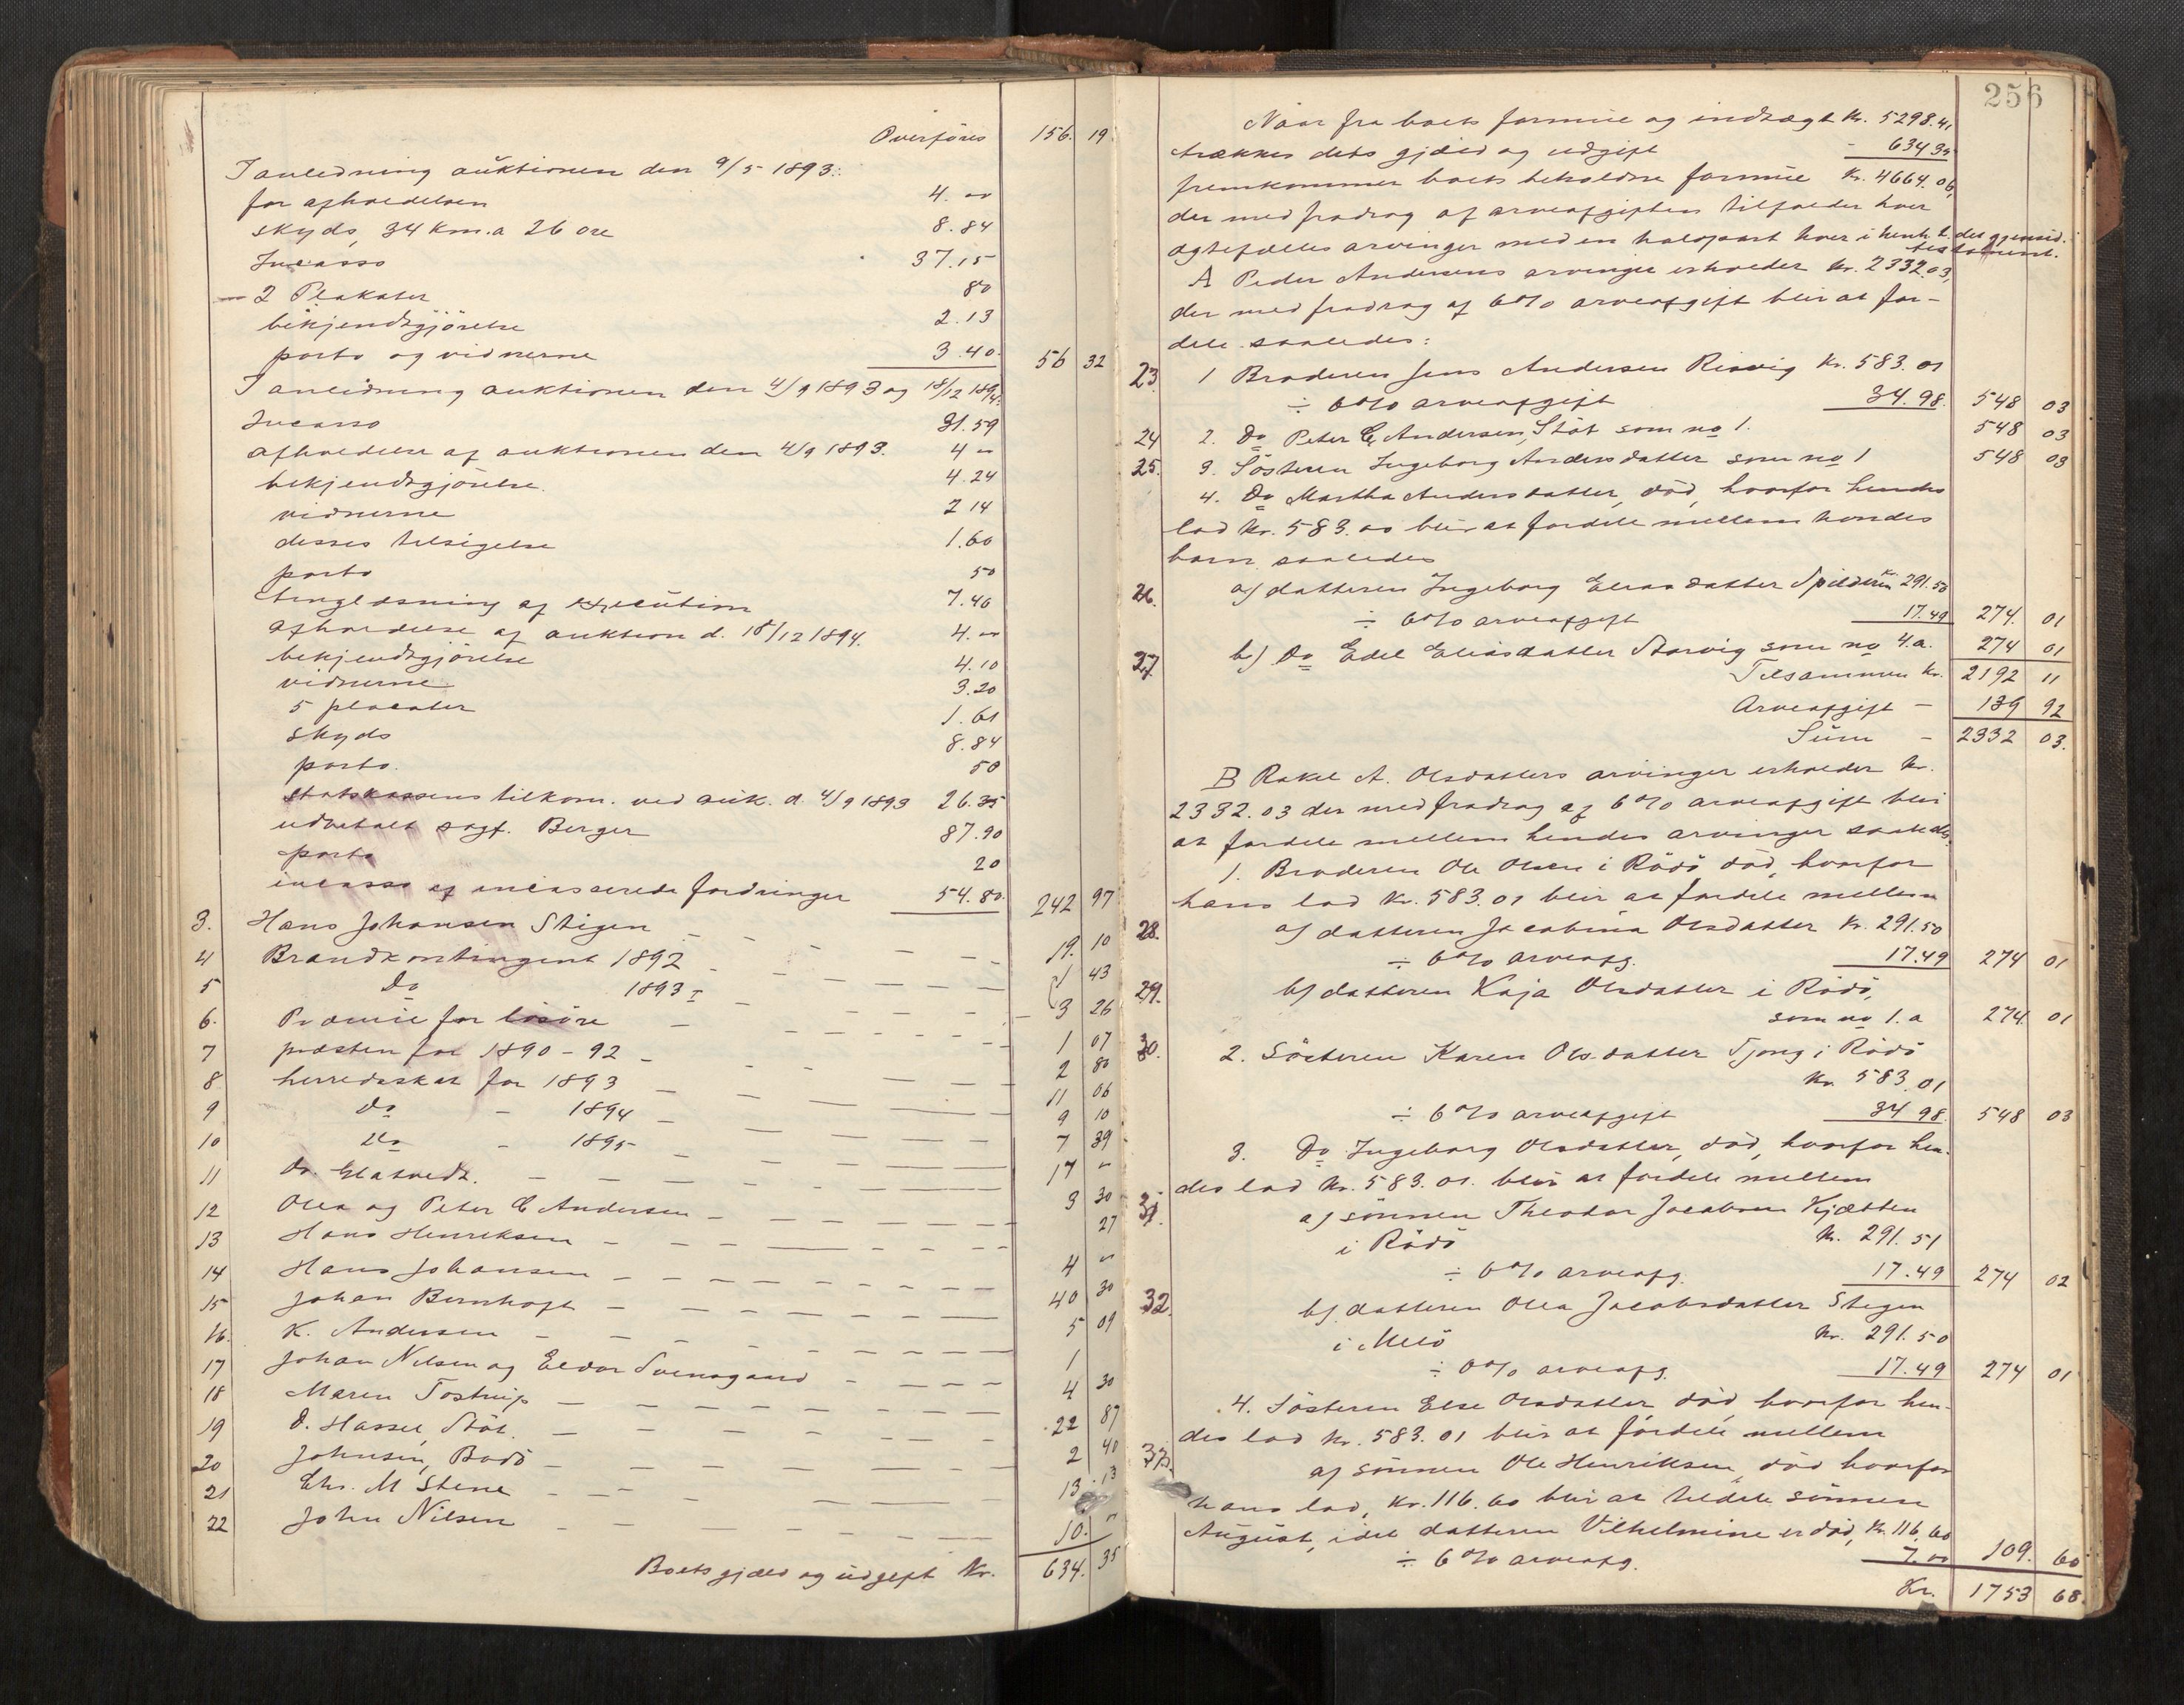 Overføres 156. 19
I anledning auktionen den 9/5 1893:
for afholdelsen 4. "
skyds, 34 km. a 26 øre 8.84
Incasso 37.15
2 Plakater 80
bekjendtgjörelse 2.13
porto og vidnerne 3.40. 56 32
I anledning auktionen den 4/9 1893 og 18/12 1894:
Incasso 31.59
afholdelse af auktionen den 4/9 1893. 4 "
bekjendtgjörelse. 4.24
vidnerne 2 14
disses tilsigelse 1.60
porto 50
tinglæsning af execution 7.40
afholdelse af auktion d. 18/12 1894. 4. "
bekjendtgjörelse 4.10
vidnerne 3.20
5 placater 1.61
skyds 8.84
porto. 50
statskassens tilkom. ved auk. d. 4/9 1893 26.35
udbetalt sagf. Berger 87.90
porto 20
incasso af incasserede fordringer 54.80. 242 97
3. Hans Johansen Stigen 19. 10
4 Brandkontingent 1892 1 43
5 Do 1893 3 26
6. Præmie for lösöre 1 07
7 præsten for 1890-92 2 80
8 herredsskat for 1893 11 06
9 do - 1894 9 10
10 do - 1895 7 39
11 Dr. Glatvedt. 17 "
12 Olea og Peter C Andersen 3 30
13 Hans Henriksen 27
14 Hans Johansen 4 "
15 Johan Bernhoft 40 30
16. K. Andersen 5 09
17 Johan Nilsen og Eldor Svensgaard 1
18 Maren Tostrup 4 30
19 D. Hassel, Stöt. 22 87
20 Johnsen, Bodö 2 40
21 Chr. M Stene 13 13
22 John Nilsen 10. "
Boets gjæld og udgift Kr. 634. 35
256
Naar fra boets formue og indtægt Kr. 5298.41
trækkes dets gjæld og udgift - 634 35
fremkommer boets beholdne formue Kr. 4664.06,
der med fradrag af arveafgiften tilfalder hver
ægtefælles arvinger med en halvpart hver i henh. t. det gjensid.
testament.
A Peder Andersens arvinger erholder Kr. 2332.03,
der med fradrag af 6% arveafgift blir at for-
dele saaledes:
23. 1 Broderen Jens Andersen Risvig Kr. 583.01
÷ 6% arveafgift 34.98. 548 03
24 2. Do Peter C Andersen, Stöt som no 1. 548 03
25. 3. Sösteren Ingeborg Andersdatter som no 1 548 03
4. Do Martha Andersdatter, död, hvorfor hendes
lod Kr. 583.00 blir at fordele mellem hendes
barn saaledes
26. a) datteren Ingeborg Eliasdatter Spilderen Kr. 291.50
÷ 6% arveafgift 17.49 274. 01
27. b) Do Edel Eliasdatter Storvig som no 4.a. 274 01
Tilsammen Kr. 2192 11
Arveafgift - 139 92
Sum - 2332 03.
B Rakel A. Olsdatters arvinger erholder Kr.
2332.03 der med fradrag af 6% arveafgift blir
at fordele mellem hendes arvinger saaledes:
1. Broderen Ole Olsen i Rödö död, hvorfor
hans lod Kr. 583.01 blir at fordele mellem
28. a) datteren Jacobina Olsdatter Kr. 291.50
÷ 6% arveafg. 17.49 274 01
29. b) datteren Kaja Olsdatter i Rödö,
som no 1.a 274. 01
30. 2. Sösteren Karen Olsdatter Tjong i Rödö
Kr. 583.01
÷ 6% arveafgift 34 98. 548 03
3. Do Ingeborg Olsdatter, död, hvorfor hen-
des lod Kr. 583.01. blir at fordele mellem
31. a) sönnen Theodor Jacobsen Kjætten
i Rödö Kr. 291.51
÷ 6% arveafg. 17.49 274 02
32. b) datteren Olea Jacobsdatter Stigen
i Melö Kr. 291.50
÷ 6% arveafg. 17.49 274 01
4. Sösteren Else Olsdatter död, hvorfor hen-
des lod Kr. 583.01 blir at fordele mellem
33. a) sönnen Ole Henriksen, död hvorfor
hans lod, Kr. 116.60 blir at tildele sönnen
August, idet datteren Vilhelmine er död, Kr. 116.60
÷ 6% arveafg. 7.00 109. 60
Kr. 1753 68.